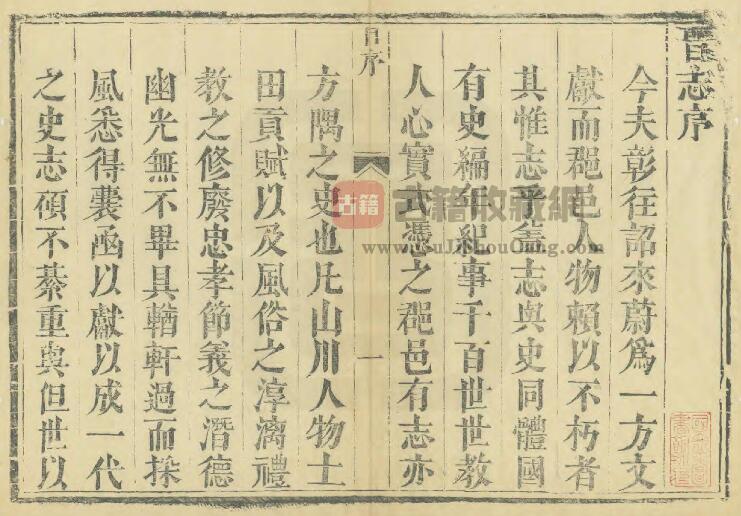 志序
今夫彰往詔來蔚爲一方文
獻而郡邑人物賴以不朽者
其惟志乎葢志與史同體國
有史編年紀事千百世世教
人心實式憑之郡邑有志亦
序
一
方隅之史也凡山川人物土
田貢賦以及風俗之淳漓禮
教之修廢忠孝節義之潛德
幽光無不畢具輶軒過而採
風悉得囊函以獻以成一代
之史志頋不綦重與但世以
古籍
古籍收藏網
www.GuJiShouCang.com